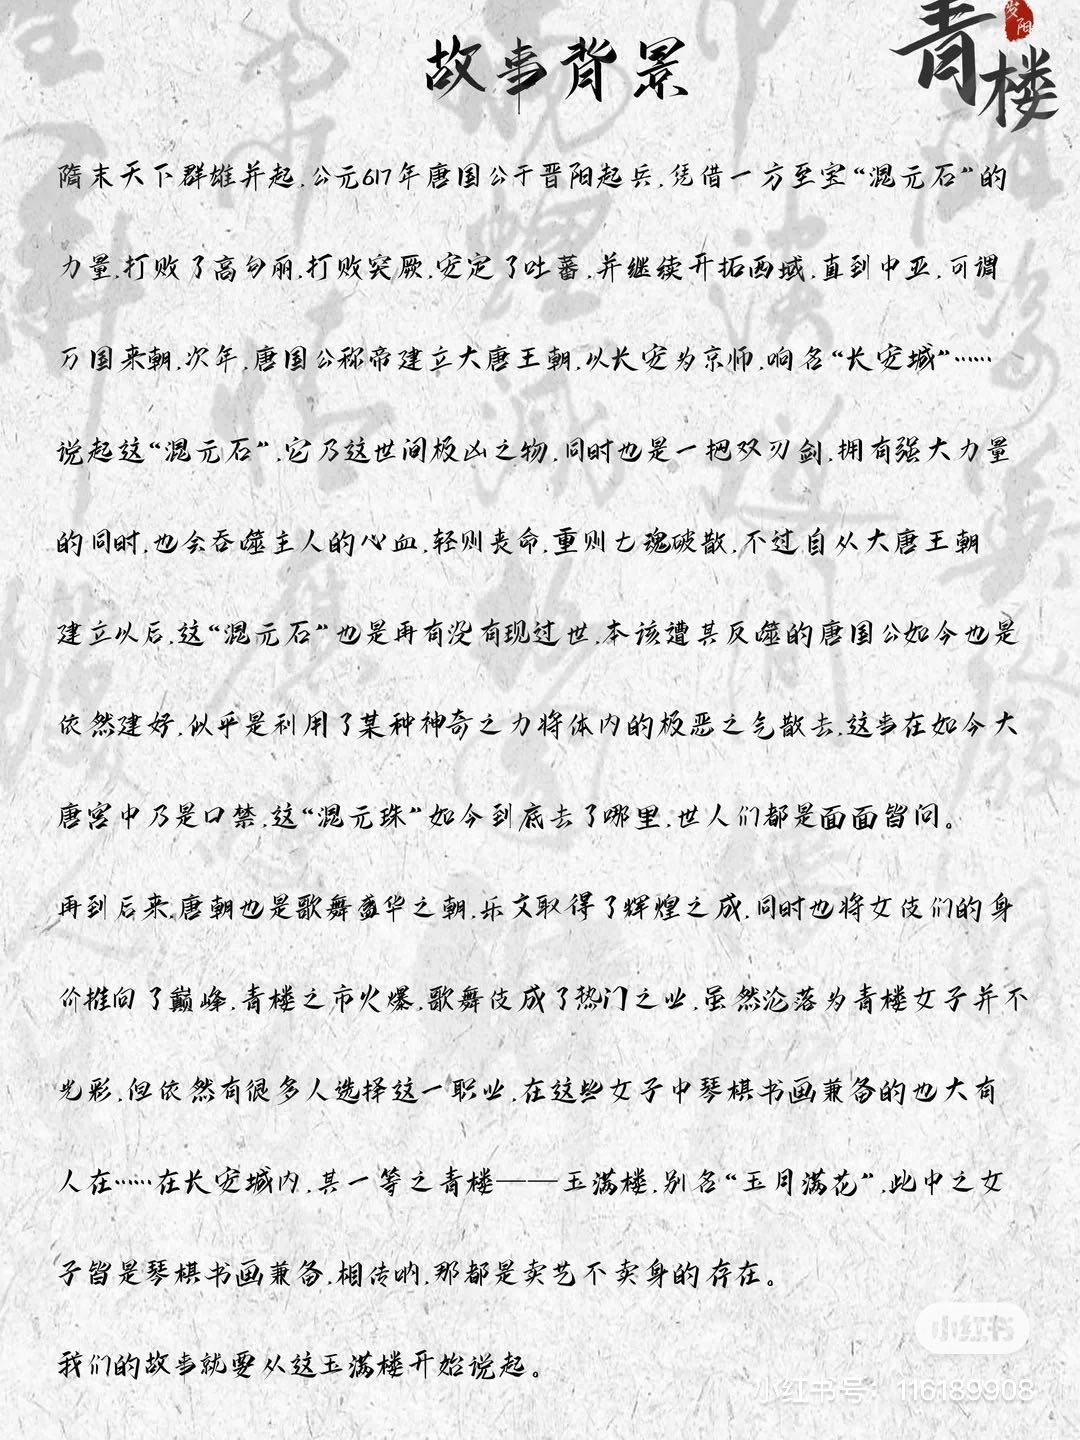 故事背景
青楼
岁阳
隋末天下群雄并起,公元617年唐国公于晋阳起兵,凭借一方至宝“混元石”的
力量,打败了高句丽,打败突厥,安定了吐蕃,并继续开拓西域,直到中亚,可谓
万国来朝,次年,唐国公称帝建立大唐王朝,以长安为京师,响名“长安城”……
说起这“混元石”,它乃这世间极凶之物,同时也是一把双刃剑,拥有强大力量
的同时,也会吞噬主人的心血,轻则丧命,重则七魂破散,不过自从大唐王朝
建立以后,这“混元石”也是再有没有现过世,本该遭其反噬的唐国公如今也是
依然建好,似乎是利用了某种神奇之力将体内的极恶之气散去,这事在如今大
唐宫中乃是口禁,这“混元珠”如今到底去了哪里,世人们都是面面皆问。
再到后来,唐朝也是歌舞盛华之朝,乐文取得了辉煌之成,同时也将女伎们的身
价推向了巅峰,青楼之市火爆,歌舞伎成了热门之业,虽然沦落为青楼女子并不
光彩,但依然有很多人选择这一职业,在这些女子中琴棋书画兼备的也大有
人在……在长安城内,其一等之青楼——玉满楼,别名“玉月满花”,此中之女
子皆是琴棋书画兼备,相传呐,那都是卖艺不卖身的存在。
我们的故事就要从这玉满楼开始说起。
小红书
小红书号：116189908